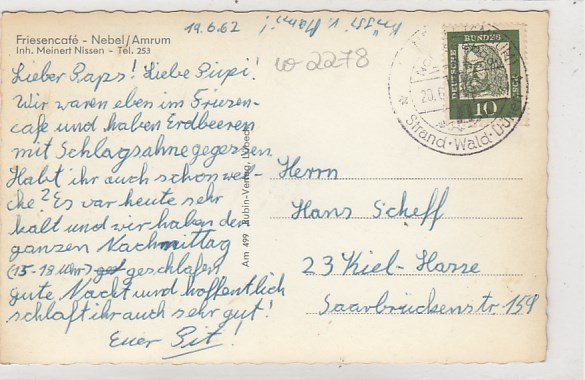 Friesencafé - Nebel/Amrum
Inh. Meinert Nissen - Tel. 253
19.6.62
Küsst v. Mami!
w 2278
Lieber Paps! Liebe Pupi!
Wir waren eben im Friesen-
cafe und haben Erdbeeren
mit Schlagsahne gegessen.
Habt ihr auch schon wel-
che? Es war heute sehr
kalt und wir haben den
ganzen Nachmittag
(15-18 Uhr) geschlafen
gute Nacht und hoffentlich
schlaft ihr auch sehr gut!
Euer Pit!
Am 499 Rubin-Verlag, Lübeck
DEUTSCHE
BUNDES
POST
10
20.6.
Strand · Wald · Dünen
Herrn
Hans Scheff
23 Kiel-Hasse
Saarbrückenstr. 159